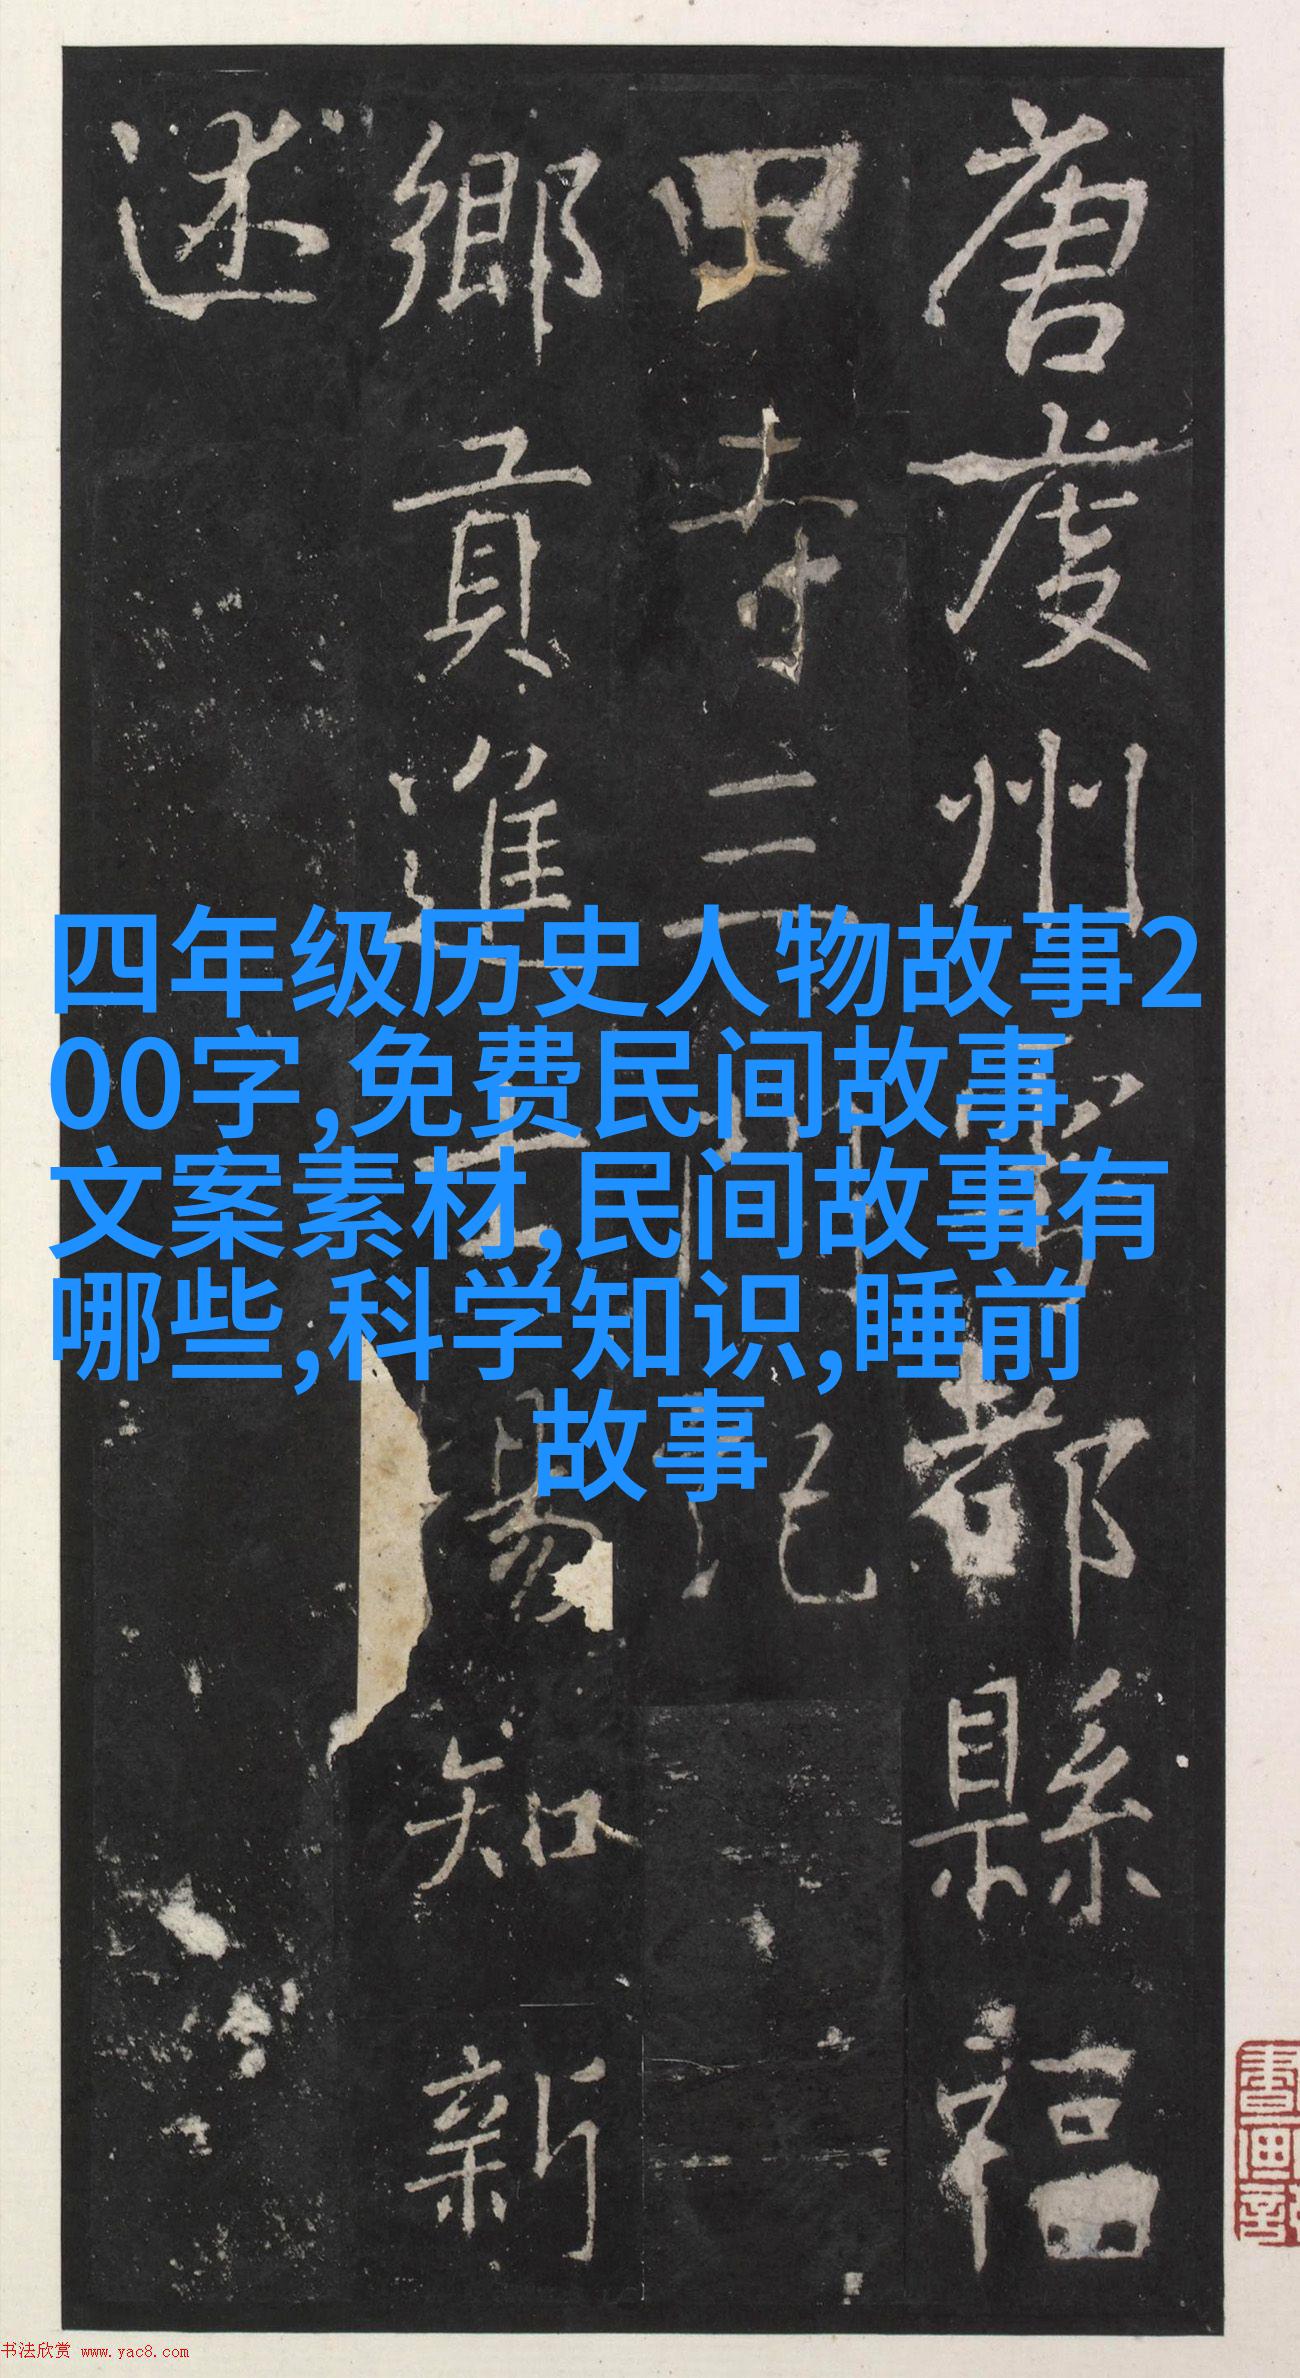 唐虔州雩都縣福
田寺三門記
鄉貢進士易知新
述
四年级历史人物故事2
00字,免费民间故事
文案素材,民间故事有
哪些,科学知识,睡前
故事
书法欣赏 www.yac8.com